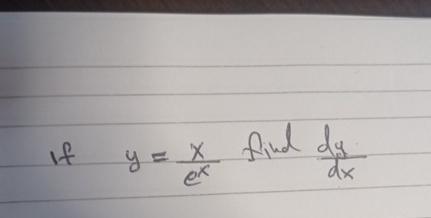 If y = x/e^x find dy/dx